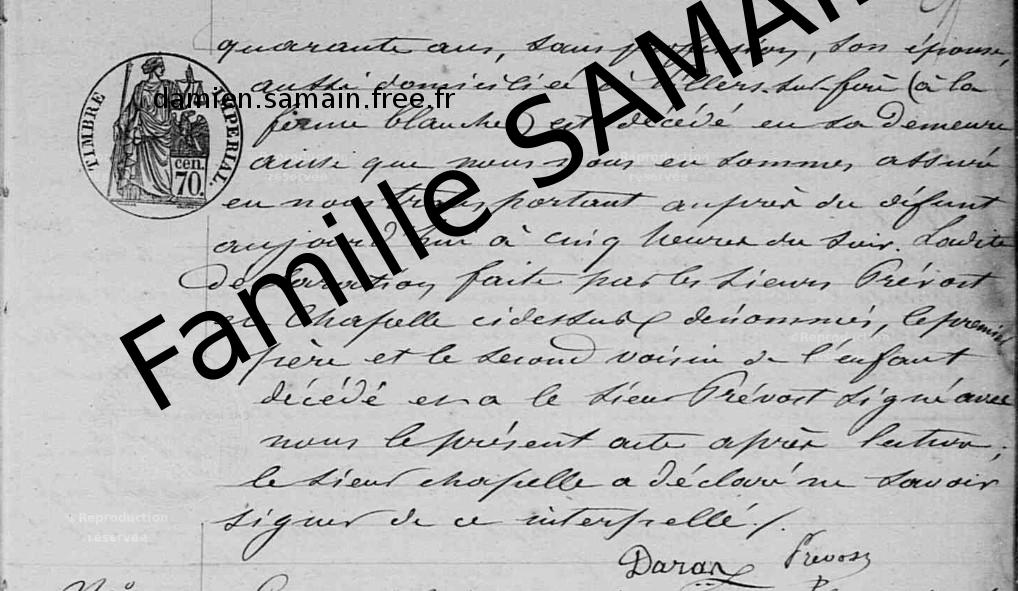 quarante ans, sans profession, son épouse,
aussi domiciliée à Villers-sur-fère (à la
damien.samain.free.fr
ferme blanche) est décédé en sa demeure
TIMBRE IMPERIAL.
cen.
70.
ainsi que nous nous en sommes assuré
en nous transportant auprès du défunt
aujourd'hui à cinq heures du soir. Ladite
déclaration faite par les sieurs Prévost
et Chapelle cidessus dénommés, le premier
père et le second voisin de l'enfant
Famille SAMAIN
décédé et a le sieur Prévost signé avec
nous le présent acte après lecture,
le sieur chapelle a déclaré ne savoir
signer de ce interpellé./.
© Reproduction
réservée
Daras Prevost